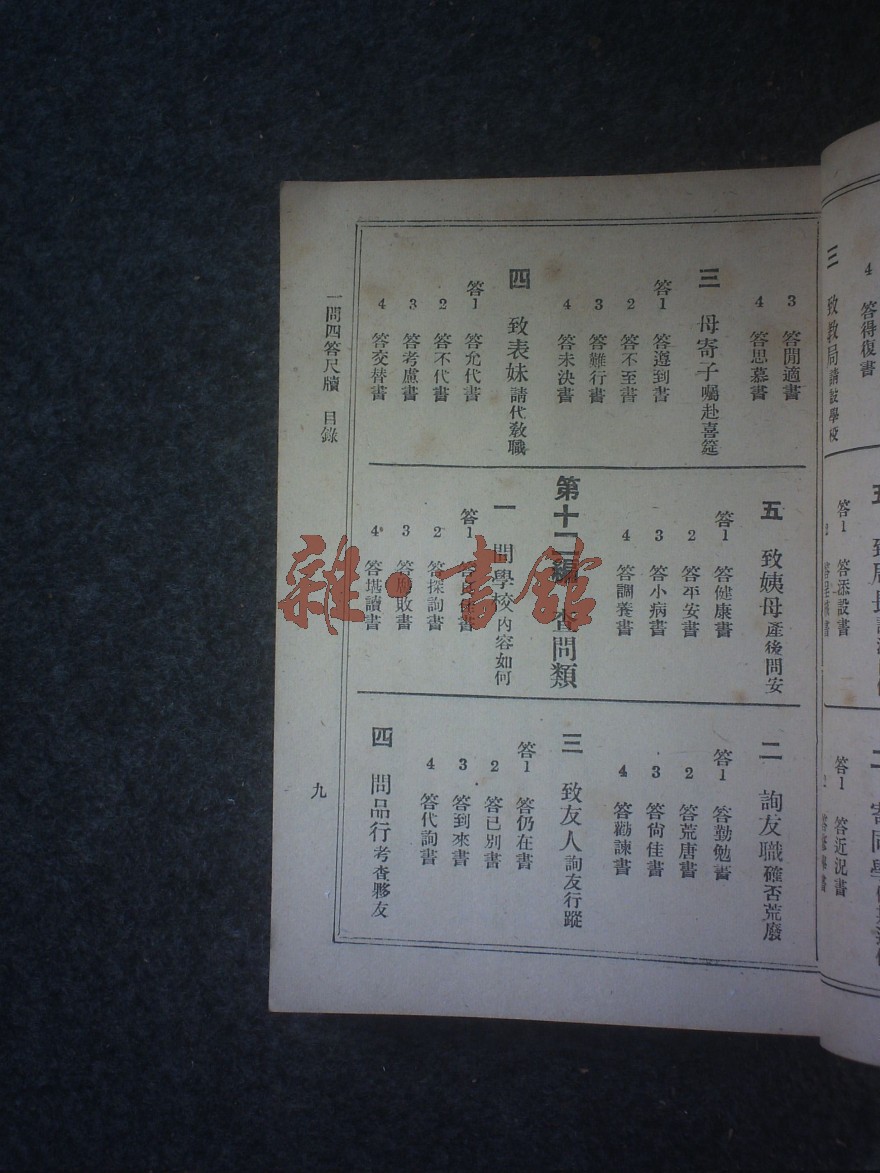 三 致教局請設學校
4 答得復書
答1 答添設書
答1 答近況書
3 答閒適書
4 答思慕書
三 母寄子囑赴喜筵
答1 答遵到書
2 答不至書
3 答難行書
4 答未決書
四 致表妹請代教職
答1 答允代書
2 答不代書
3 答考慮書
4 答交替書
五 致姨母產後問安
答1 答健康書
2 答平安書
3 答小病書
4 答調養書
第十二編 查問類
一 問學校內容如何
答1
2 答探詢書
3 答腐敗書
4 答堪讀書
二 詢友職確否荒廢
答1 答勤勉書
2 答荒唐書
3 答尙佳書
4 答勸諫書
三 致友人詢友行蹤
答1 答仍在書
2 答已別書
3 答到來書
4 答代詢書
四 問品行考查夥友
一問四答尺牘 目錄
九
雜·書館